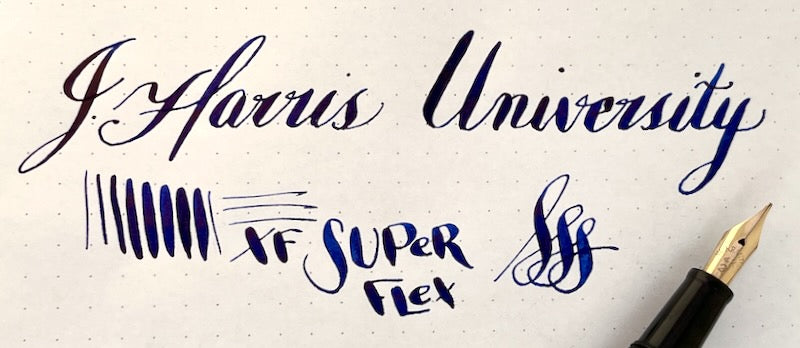 J. Harris University
XF SUPER
FLEX